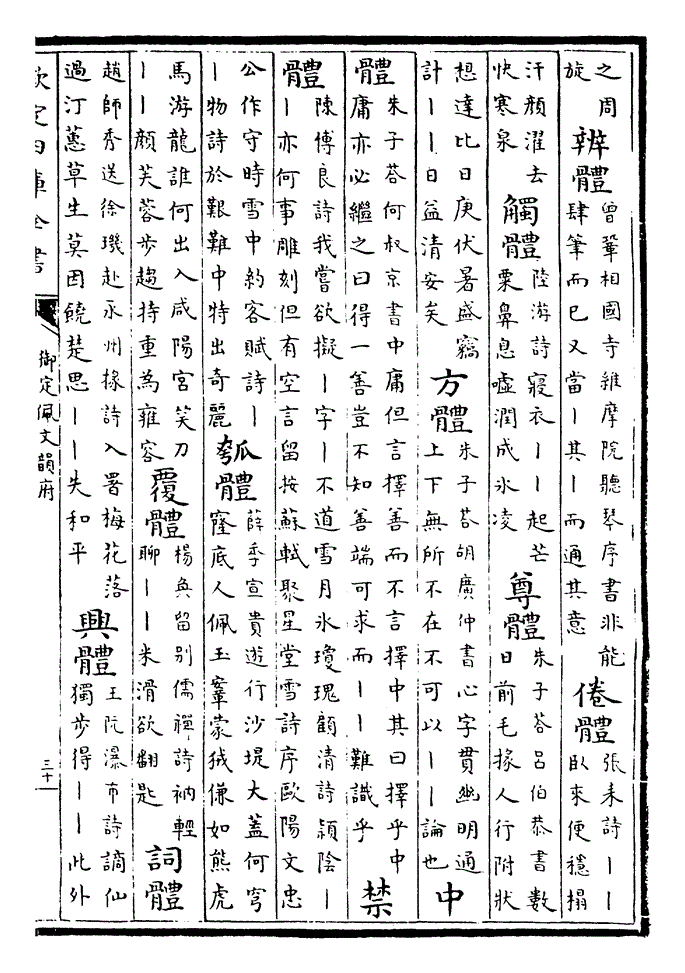 之周
旋
辨體
曾鞏相國寺維摩院聽琴序書非能
肆筆而已又當丨其丨而通其意
倦體
張耒詩丨丨
臥來便穩榻
汗顏濯去
快寒泉
觸體
陸游詩寢衣丨丨起芒
粟鼻息噓潤成氷凌
尊體
朱子荅呂伯恭書數
日前毛掾人行附狀
想達比日庚伏暑盛竊
計丨丨日益清安矣
方體
朱子荅胡廣仲書心字貫幽明通
上下無所不在不可以丨丨論也
中
體
朱子荅何叔京書中庸但言擇善而不言擇中其曰擇乎中
庸亦必繼之曰得一善豈不知善端可求而丨丨難識乎
禁
體
陳傅良詩我嘗欲擬丨字丨不道雪月氷瓊瑰顧清詩潁陰丨
丨亦何事雕刻但有空言留按蘇軾聚星堂雪詩序歐陽文忠
公作守時雪中約客賦詩丨
丨物詩於艱難中特出奇麗
瓠體
薛季宣貴遊行沙堤大蓋何穹
窿底人佩玉鞶蒙狨傔如熊虎
馬游龍誰何出入咸陽宮笑刀
丨丨顏芙蓉步趨持重為雍容
覆體
楊奐留别儒禪詩衲輕
聊丨丨米滑欲翻匙
詞體
趙師秀送徐璣赴永州掾詩入署梅花落
過汀蕙草生莫因饒楚思丨丨失和平
興體
王阮瀑布詩謫仙
獨步得丨丨此外
欽定四庫全書
御定佩文韻府
三十